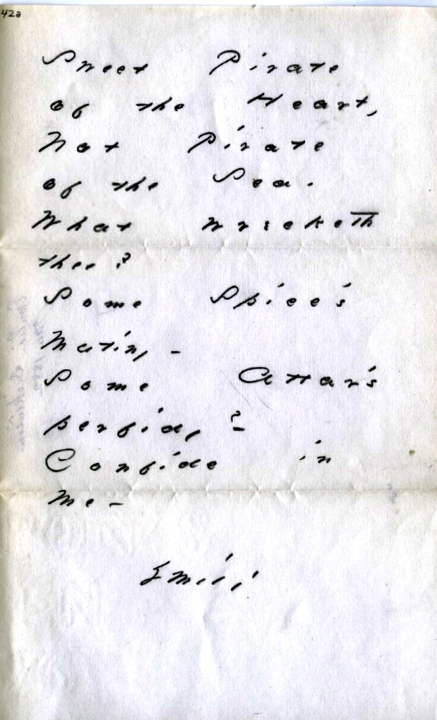 42a
Sweet Pirate
of the Heart,
Not Pirate
of the Sea.
What wrecketh
thee?
Some Spice's
Mutiny -
Some Attar's
perfidy? -
Confide in
me -
Emily